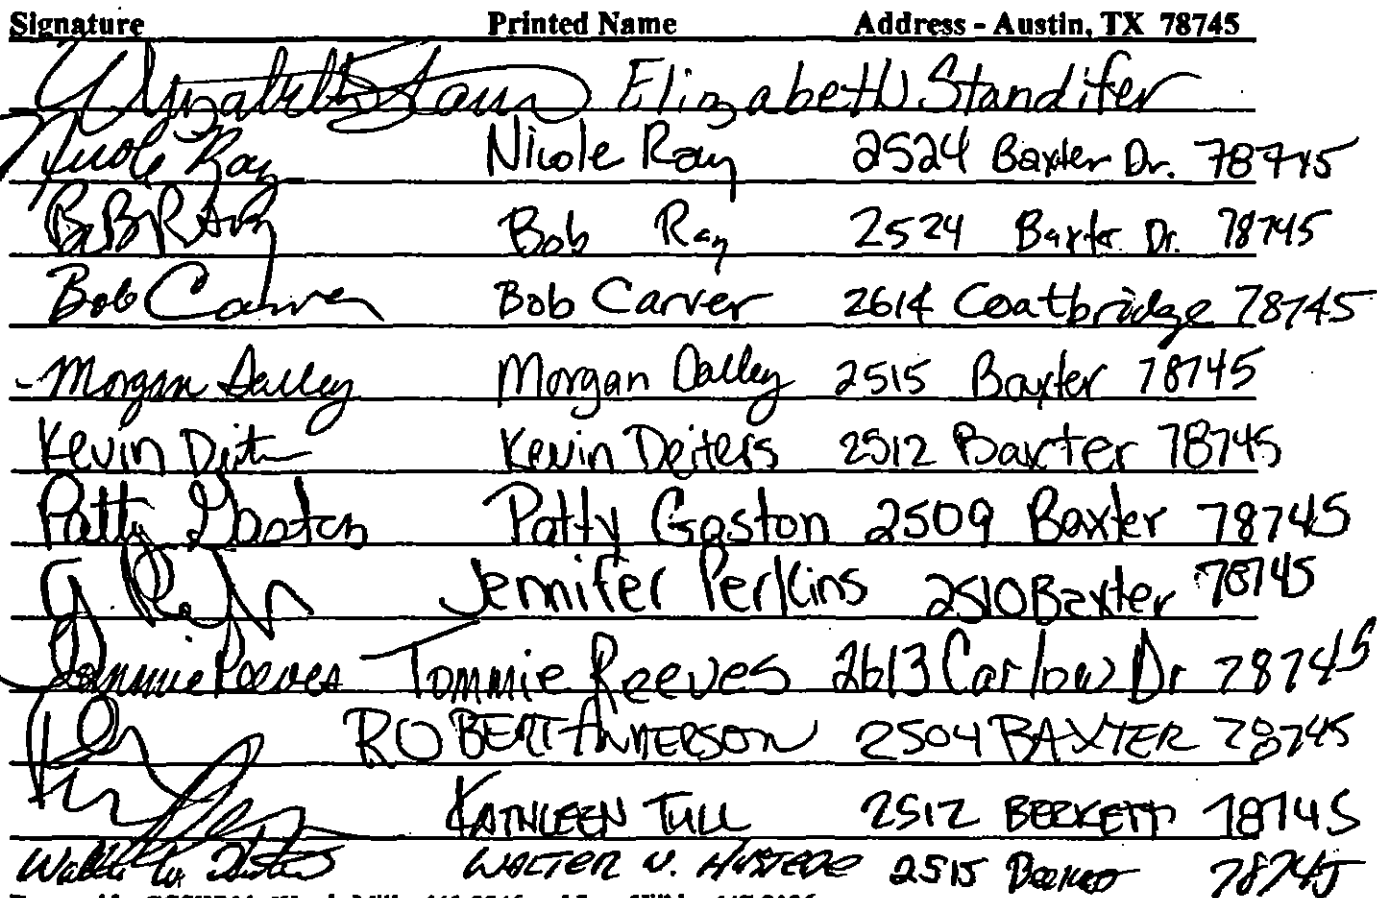 Signature Printed Name Address - Austin, TX 78745
Elizabeth Elizabeth Standifer
Nicole Ray Nicole Ray 2524 Baxter Dr. 78745
Bob Ray Bob Ray 2524 Baxter Dr. 78745
Bob Carver Bob Carver 2614 Coatbridge 78745
Morgan Dalley Morgan Dalley 2515 Baxter 78745
Kevin Deit Kevin Deiters 2512 Baxter 78745
Patty Gaston Patty Gaston 2509 Baxter 78745
Jennifer Perkins 2510 Baxter 78745
Tommie Reeves Tommie Reeves 2613 Carlow Dr 78745
ROBERT ANDERSON 2504 BAXTER 78745
KATHLEEN TULL 2512 BERKETT 78745
Walter WALTER 2515 78745